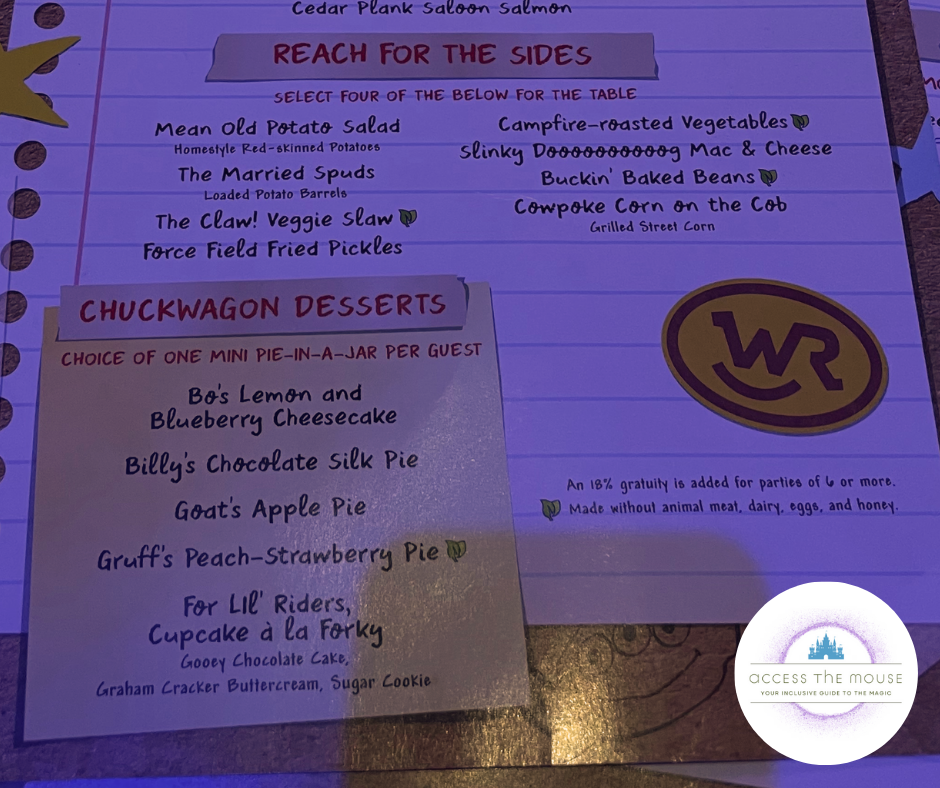 Cedar Plank Saloon Salmon
REACH FOR THE SIDES
SELECT FOUR OF THE BELOW FOR THE TABLE
Mean Old Potato Salad
Homestyle Red-skinned Potatoes
The Married Spuds
Loaded Potato Barrels
The Claw! Veggie Slaw
Force Field Fried Pickles
Campfire-roasted Vegetables
Slinky Doooooooooog Mac & Cheese
Buckin' Baked Beans
Cowpoke Corn on the Cob
Grilled Street Corn
CHUCKWAGON DESSERTS
CHOICE OF ONE MINI PIE-IN-A-JAR PER GUEST
Bo's Lemon and
Blueberry Cheesecake
Billy's Chocolate Silk Pie
Goat's Apple Pie
Gruff's Peach-Strawberry Pie
For LIl' Riders,
Cupcake à la Forky
Gooey Chocolate Cake,
Graham Cracker Buttercream, Sugar Cookie
WR
An 18% gratuity is added for parties of 6 or more.
Made without animal meat, dairy, eggs, and honey.
ACCESS THE MOUSE
YOUR INCLUSIVE GUIDE TO THE MAGIC